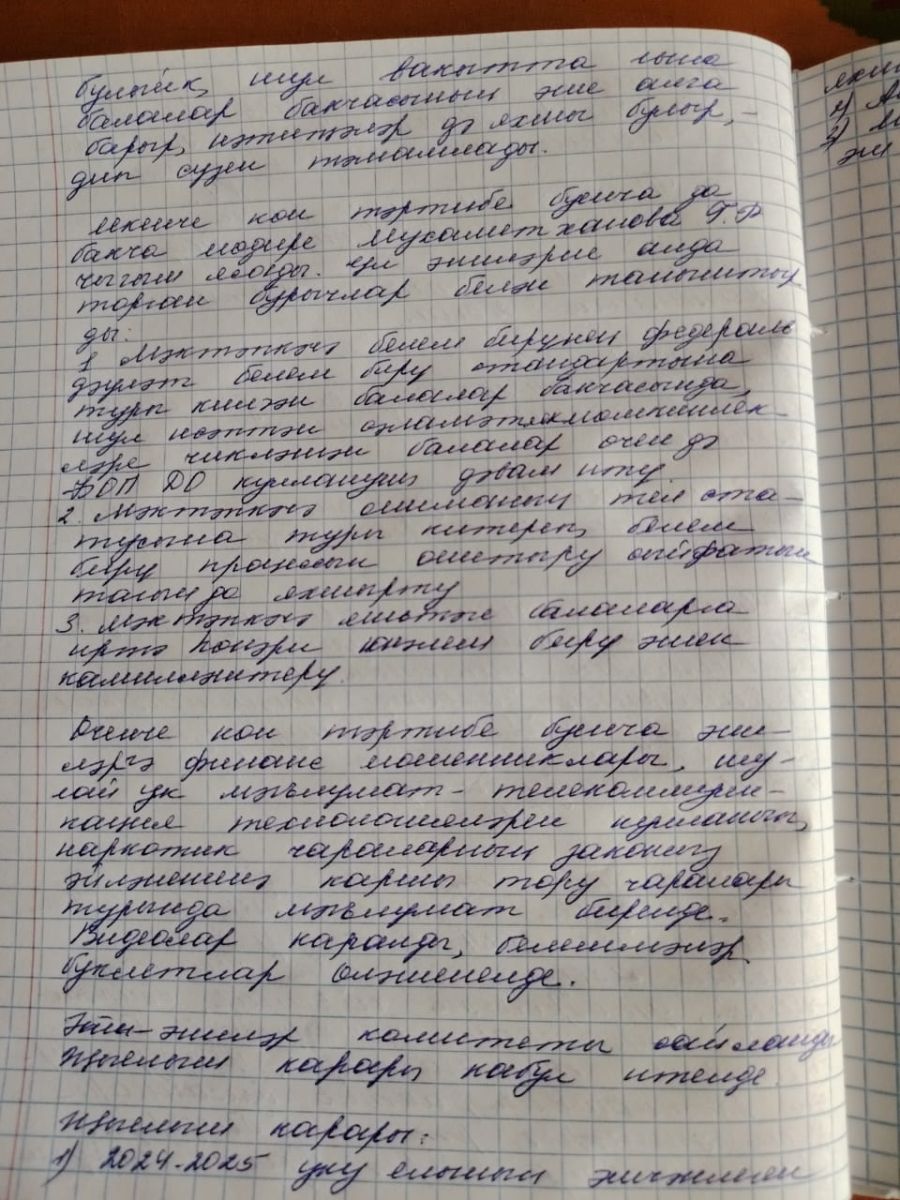 булыйк, шул вакытта гына
балалар бакчасының эше алга
барыр, нәтиҗәләр дә яхшы булыр, –
дип сүзен тәмамлады.
Икенче көн тәртибе буенча да
бакча мөдире Мухаметханова Г.Р
чыгыш ясады. Ул әниләрне алда
торган бурычлар белән танышты
ды:
1 Мәктәпкәчә белем бирүнең федераль
дәүләт белем бирү стандартына
туры килгән балалар бакчасында,
шул исәптән сәламәтлек мөмкинлек-
ләре чикләнгән балалар өчен дә
ФОП ДО куллануны дәвам итү
2. Мәктәпкәчә оешманың тел ста-
тусына туры китереп, белем
бирү процессын оештыру сыйфатын
тагын да яхшырту
3. Мәктәпкәчә яшьтәге балаларга
иртә һөнәри юнәлеш бирү эшен
камилләштерү.
Өченче көн тәртибе буенча әни-
ләргә финанс мошенниклары, шу-
лай ук мәгълумат - телекоммуни-
кация технологияләрен кулланып,
наркотик чараларның законсыз
әйләнешенә каршы тору чаралары
турында мәгълумат бирелде.
Видеолар каралды, белешмәләр
буклетлар өләшенелде.
Әти-әниләр комитеты сайланды
Җыелыш карары кабул ителде
Җыелыш карары:
1) 2024-2025 уку елының
яхш
1)
2)